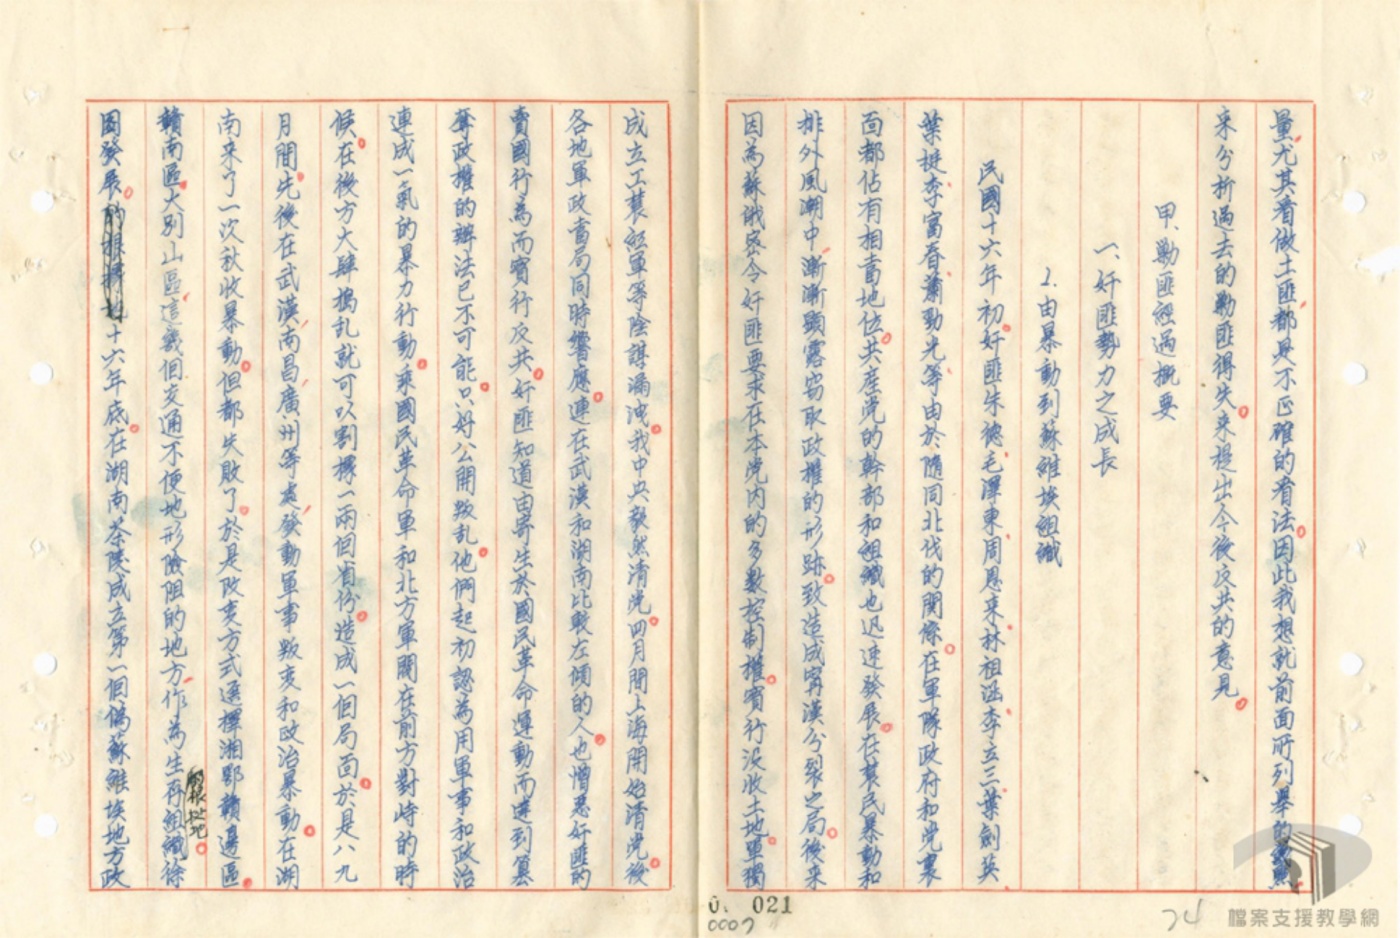 量尤其看做土匪都是不正確的看法。因此我想就前面所列舉的幾點
來分析過去的剿匪得失。來提出今後反共的意見。
甲、剿匪經過概要
一、奸匪勢力之成長
1.由暴動到蘇維埃組織
民國十六年初。奸匪朱德、毛澤東、周恩來、林祖涵、李立三、葉劍英、
葉挺、李富春、蕭勁光等由於隨同北伐的關係。在軍隊政府和党裏
面都佔有相當地位。共產党的幹部和組織也迅速發展。在農民暴動和
排外風潮中、漸漸顯露窃取政權的形跡。致造成寧漢分裂之局。後來
因為蘇俄密令奸匪要求在本党内的多數控制權。實行沒收土地。單獨
成立工農紅軍等陰謀漏洩。我中央毅然清党。四月間上海開始清党。後
各地軍政當局同時響應。連在武漢和湖南比較左傾的人。也憎惡奸匪的
賣國行為而實行反共。奸匪知道由寄生於國民革命運動而達到篡
奪政權的辦法已不可能。只好公開叛乱。他們起初認為用軍事和政治
連成一氣的暴力行動。乘國民革命軍和北方軍閥在前方對峙的時
候。在後方大肆搗乱就可以割據一兩個省份。造成一個局面。於是八九
月間。先後在武漢、南昌、廣州等處、發動軍事叛变和政治暴動。在湖
南來了一次秋收暴動。但都失敗了。於是改变方式選擇湘鄂贛邊區。
贛南區。大別山區、這幾個交通不便地形險阻的地方、作為生存組織徐
的根拠地。
圖發展。十六年底。在湖南茶陵成立第一個偽蘇維埃地方政
021
0007
24
檔案支援教學網